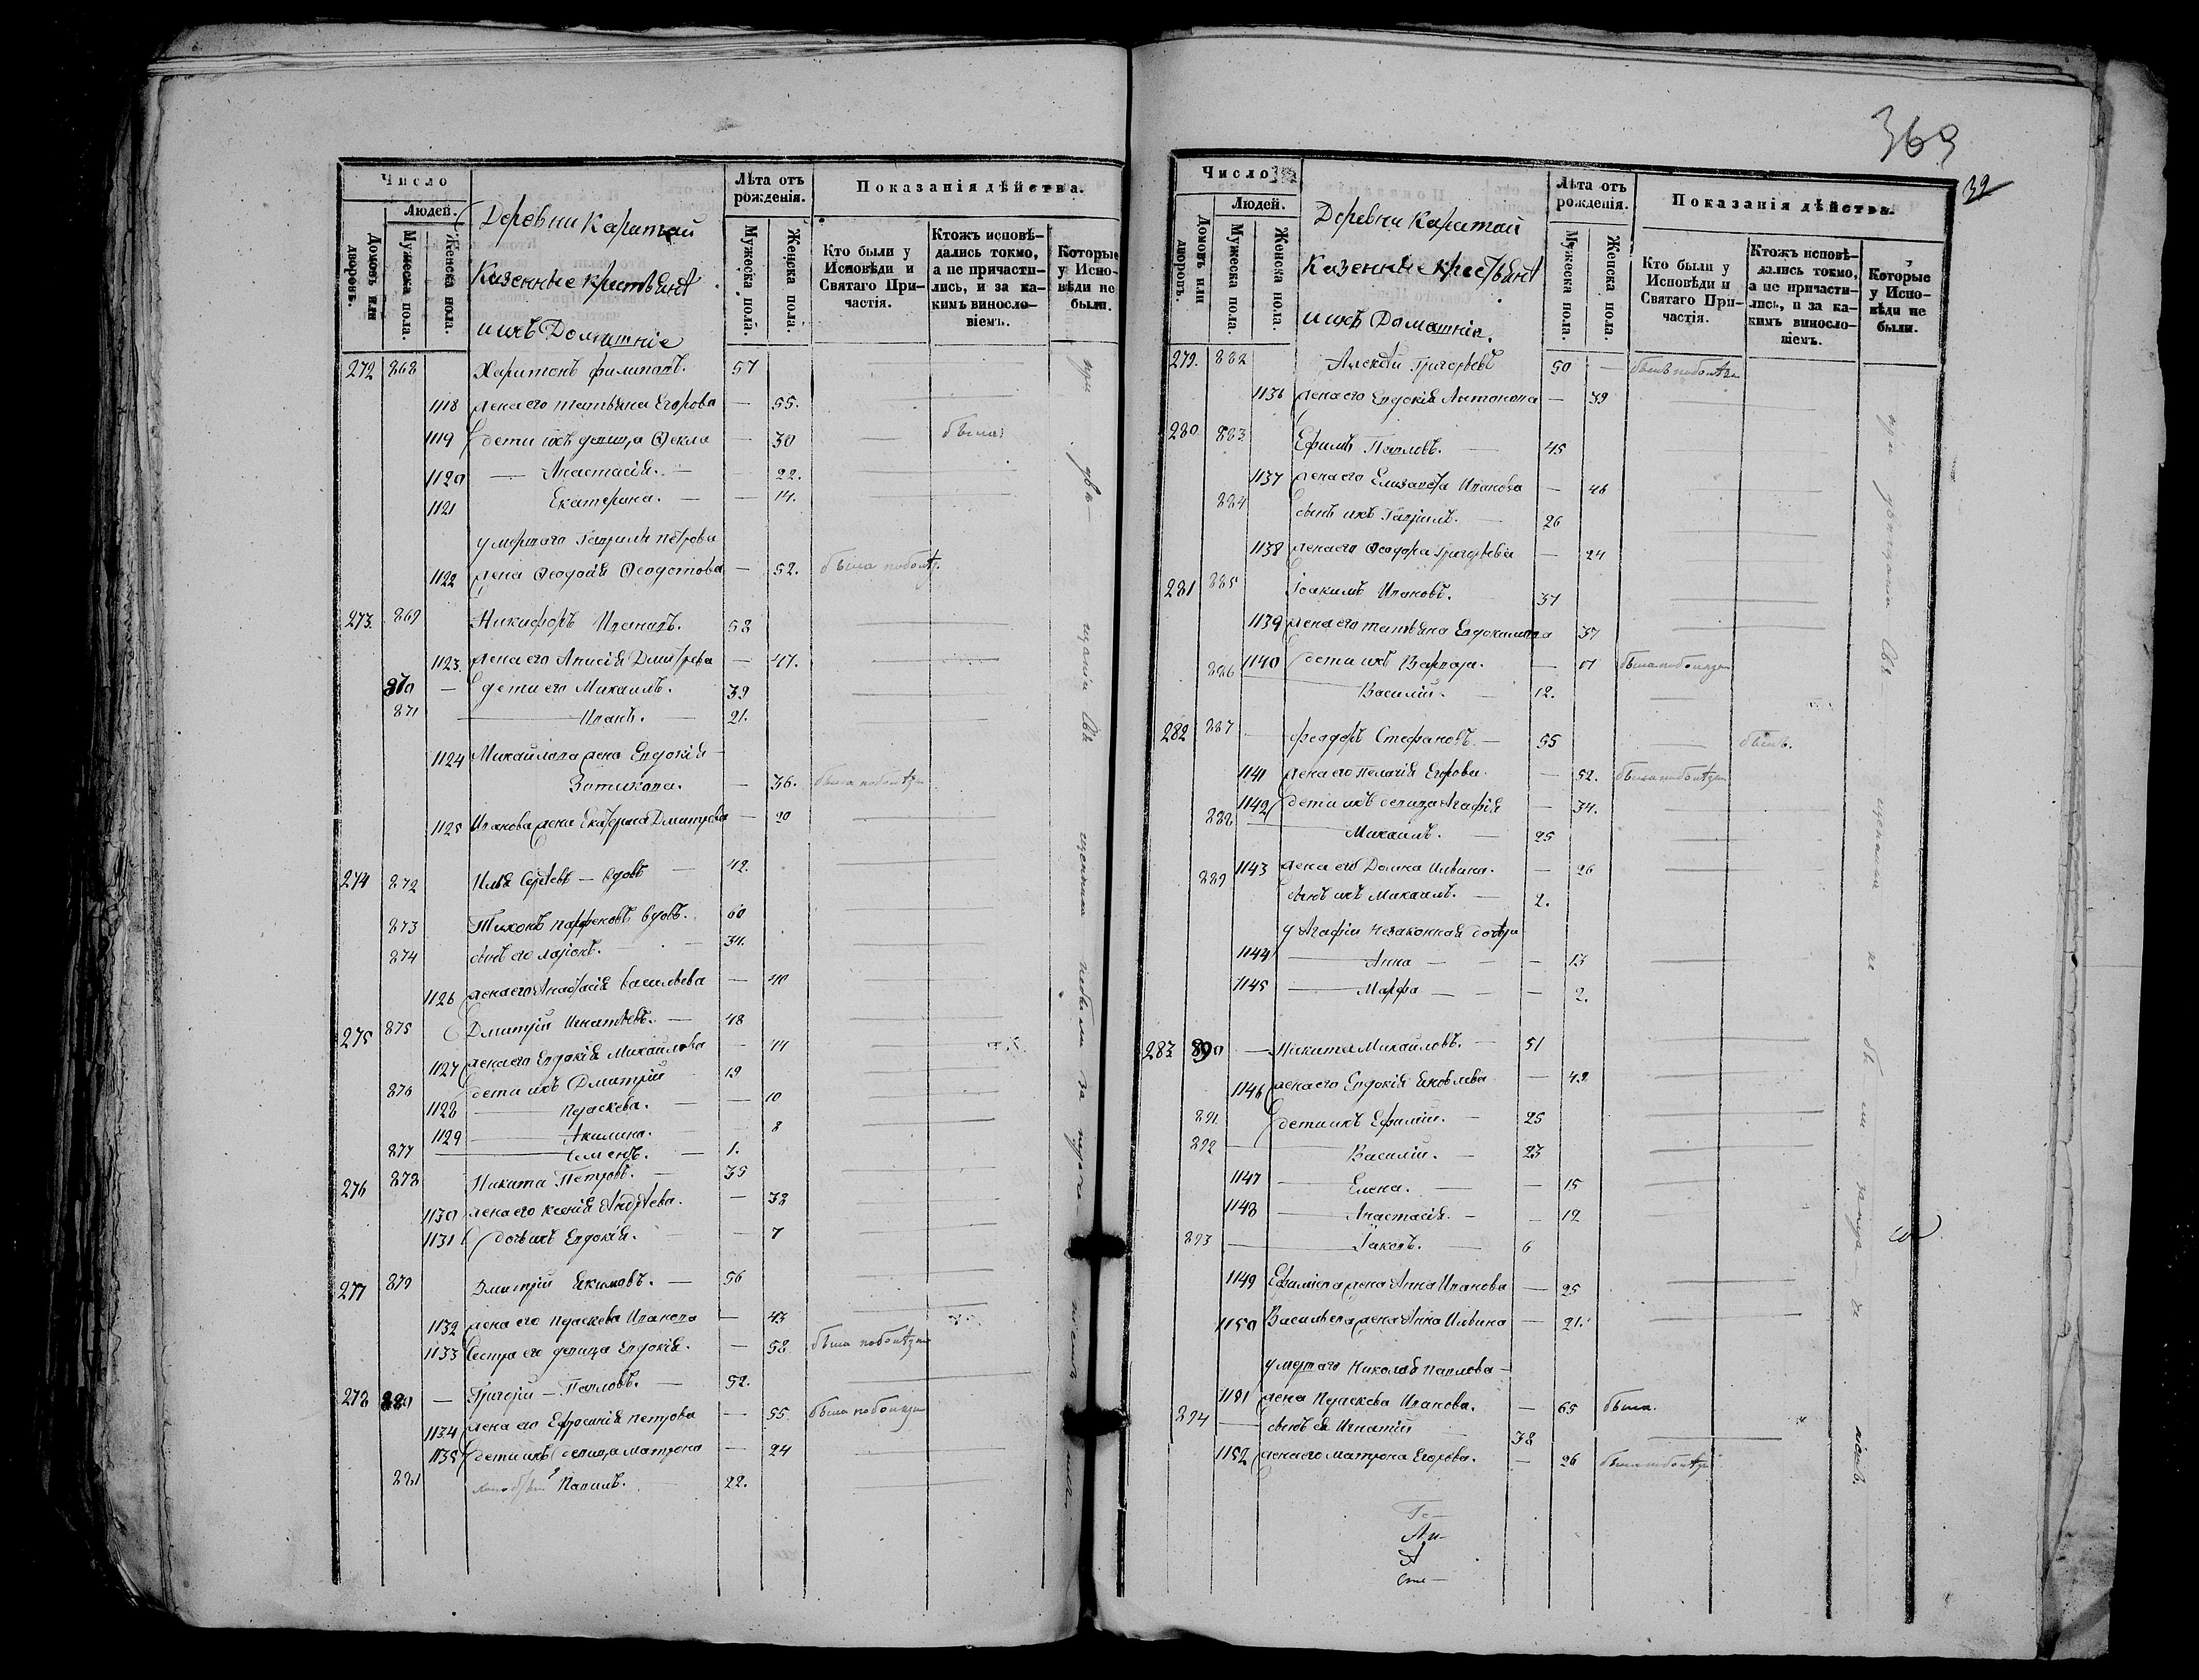 Число
Людей.
Домовъ или дворовъ.
Мужеска пола.
Женска пола.
Деревни Каратай
Казенные крестьянѣ
и ихъ Домашніе
Лѣта отъ рожденія.
Мужеска пола.
Женска пола.
Показанія дѣйства.
Кто были у Исповѣди и Святаго При-
частія.
Ктожъ исповѣ-
дались токмо,
а не причасти-
лись, и за ка-
кимъ винослo-
віемъ.
Которые
у Испо-
вѣди не
были.
272 868 Харитонъ Филиповъ. 57
1118 жена его Татьяна Егорова — 55.
1119 дети ихъ девица Фекла — 30 была
1120 — Анастасія. — 22.
1121 Екатерина. — — 14.
умершаго Гаврила Петрова
1122 жена Феодосія Федотова — 52. была по болѣз.
273. 869 Никифоръ Ивановъ. 58
1123. жена его Анисія Дмитрева — 47.
870 — дети его Михаилъ. 39
871 — Иванъ. — 21.
1124 Михайлова жена Евдокія —
— 36. была по болѣзни
1125 Иванова жена Екатерина Дмитрева — 20
274 872 Илья Сергѣевъ — вдовъ — 42.
873 Тихонъ Парфеновъ вдовъ. 60
874 сынъ его Ларіонъ. — 34.
1126 жена его Анастасія Васильева — 40
275 875 Дмитрій Игнатьевъ. — 48
1127 жена его Евдокія Михайлова — 44
876 дети ихъ Дмитрій 19
1128 Праскева. — — 10
1129 — Акилина. 8
877 — Семенъ. — 1.
276 878 Никита Петровъ. — 35
1130 жена его Ксенія Андрѣева. — 38
1131 дочь ихъ Евдокія. — 7
277 879 Дмитрій Екимовъ. — 56
1132 жена его Праскева Иванова — 43
1133 Сестра его девица Евдокія. — 58 была по болѣзни
278 880 — Григорій — Павловъ. — 52.
1134 жена его Ефросинія Петрова — 55 была по болѣзни
1135 дети ихъ девица Матрона — 24
881 Павилъ. 22.
369
32
Число
Людей.
Домовъ или дворовъ.
Мужеска пола.
Женска пола.
Деревни Каратай
Казенные крестьянѣ
и ихъ Домашніе.
Лѣта отъ рожденія.
Мужеска пола.
Женска пола.
Показанія дѣйства.
Кто были у Исповѣди и Святаго При-
частія.
Ктожъ исповѣ-
дались токмо,
а не причасти-
лись, и за ка-
кимъ винослo-
віемъ.
Которые
у Испо-
вѣди не
были.
279. 882 Алексѣй Григорьевъ 50 — былъ по болѣзни
1136 жена его Евдокія Антонова — 39
280 883 Ефимъ Павловъ. — 45
1137 жена его Елизавета Иванова — 46
884 сынъ ихъ Гаврилъ. — 26
1138 жена его Феодора Григорьева — 24
281 885 Іоакимъ Ивановъ. — 37
1139 жена его Татьяна Евдокимова 37
1140 дети ихъ Варвара. — 17 была по болѣзни
886 — Василій. — 12.
282 887 — Феодоръ Стефановъ. — 55 былъ.
1141 жена его Пелагія Егорова. — 52. была по болѣзни
1142 дети ихъ девица Агафія — 34.
888 — Михаилъ. — 25
1143 жена его Домна Ильина. — 26
889 сынъ ихъ Михаилъ. — 2.
у Агафіи незаконная дочери
1144 — Анна — — 13
1145 — Марфа — — 2.
283 890 — Никита Михайловъ. — 51
1146 жена его Евдокія Яковлева — 49
891 дети ихъ Ефимій. — 25
892 — Василій. — 23
1147 — Елена. — — 15
1148 — Анастасія. — — 12
893 — Іаковъ. — 6
1149 Ефимьева жена Анна Иванова — 25
1150 Васильева жена Анна Ильина — 21.
умершаго Николая Павлова —
1151 жена Праскева Иванова. — 65 была.
894 — сынъ ея Игнатій 38
1152 жена его Матрона Егорова. — 26 была по болѣзни